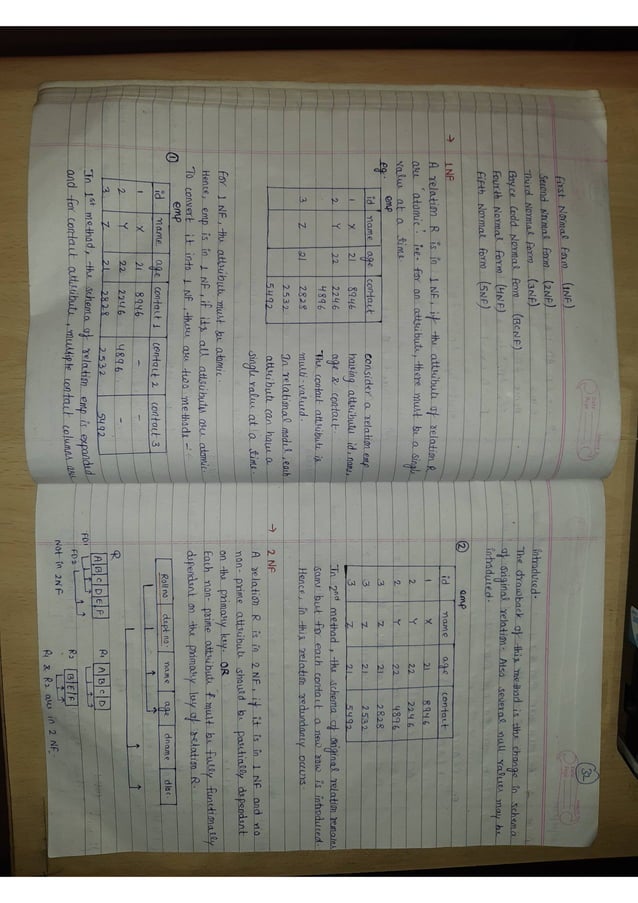 First Normal Form (1NF)
Second Normal Form (2NF)
Third Normal Form (3NF)
Boyce Codd Normal Form (BCNF)
Fourth Normal Form (4NF)
Fifth Normal Form (5NF)
→ 1NF
A relation R is in 1NF, if the attribute of relation R
are 'atomic'. i.e. for an attribute, there must be a single
value at a time
eg: emp
id name age contact
1 X 21 8946
2 Y 22 2246
4896
3 Z 21 2828
2532
5492
consider a relation emp
having attributes id, name,
age & contact.
The contact attribute is
multi-valued.
In relational model, each
attribute can have a
single value at a time.
For 1NF, the attribute must be atomic
Hence, emp is in 1NF, if its all attributes are atomic.
To convert it into 1NF, there are two methods -
① emp
id name age contact 1 contact 2 contact 3
1 X 21 8946 - -
2 Y 22 2246 4896 -
3 Z 21 2828 2532 5492
In 1st method, the schema of relation emp is expanded
and for contact attribute, multiple contact columns are
32
introduced.
The drawback of this method is the change in schema
of original relation. Also several null values may be
introduced.
② emp
id name age contact
1 X 21 8946
2 Y 22 2246
2 Y 22 4896
3 Z 21 2828
3 Z 21 2532
3 Z 21 5492
In 2nd method, the schema of original relation remains
same but for each contact a new row is introduced.
Hence, in this relation redundancy occurs
→ 2NF
A relation R is in 2NF, if it is in 1NF and no
non-prime attribute should be partially dependent
on the primary key. OR
Each non-prime attribute must be fully functionally
dependent on the primary key of relation R.
Rollno dept no name age dname
R
A B C D E F
FD1
FD2
Not in 2NF
R1 A B C D
R2 B E F
R1 & R2 are in 2NF.